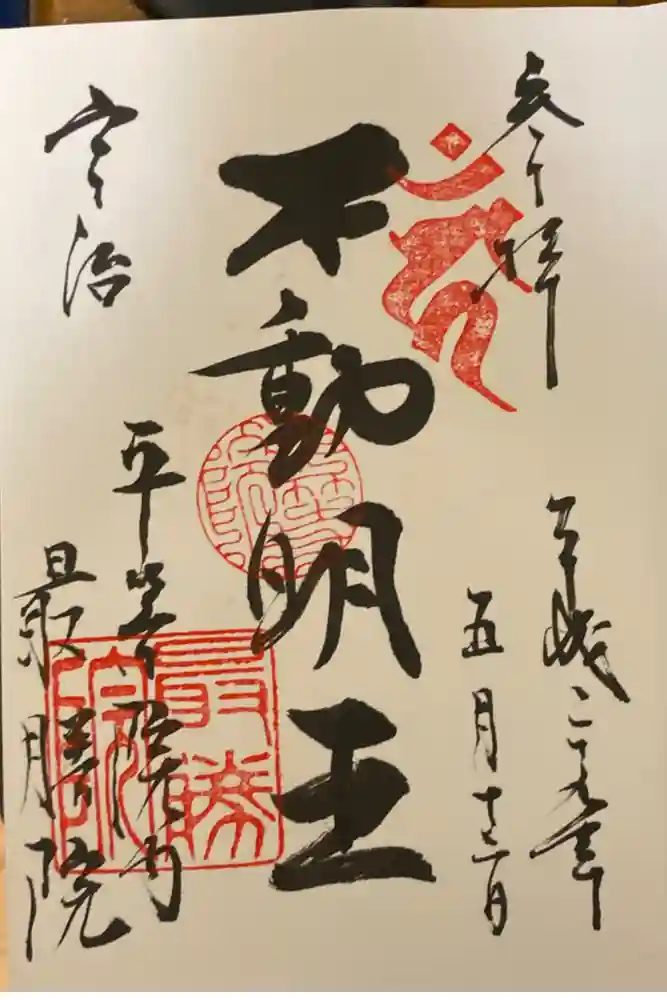 奉拝
平成二十九年
五月十三日
不動明王
宇治
平等院内
最勝院
最勝院